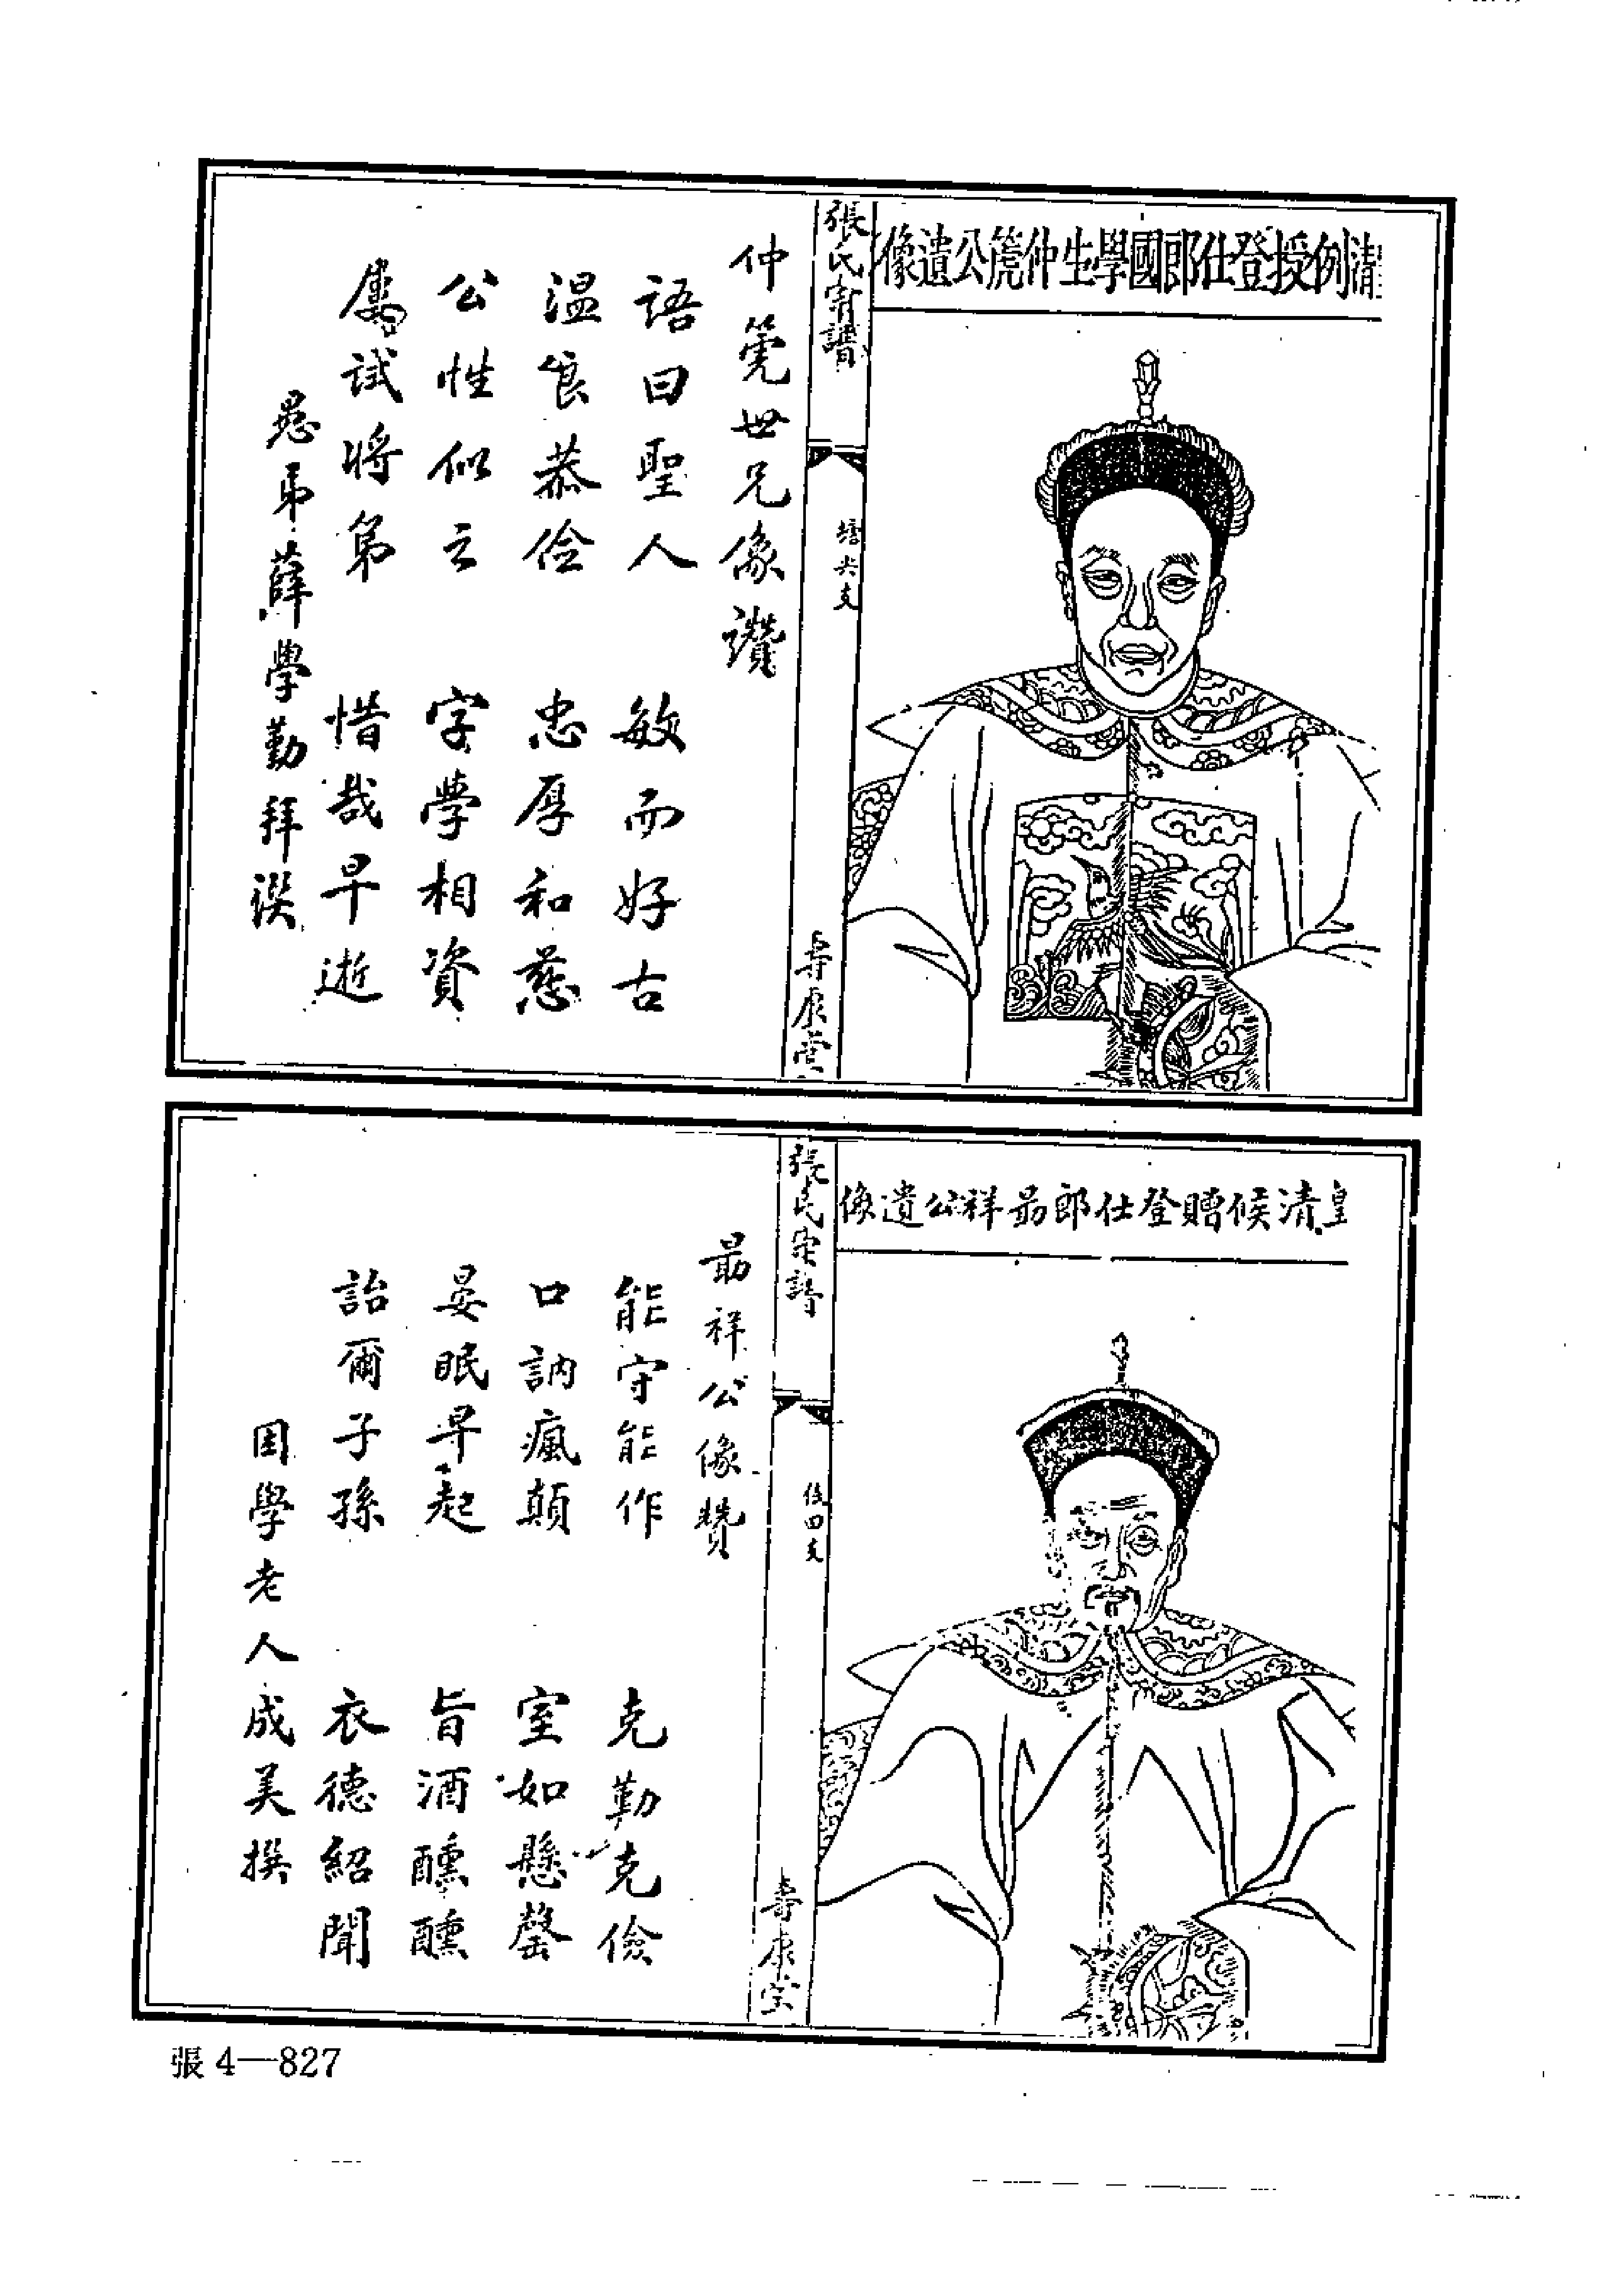 清例授登仕郎國學生仲篪公遺像
張氏宗譜
壽康堂
仲篪世兄像讚
語曰聖人　敏而好古
溫良恭儉　忠厚和慈
公性似之　字學相資
屢試將第　惜哉早逝
愚弟薛學勤拜譔
皇清候贈登仕郎最祥公遺像
張氏宗譜
四支
壽康堂
最祥公像贊
能守能作　克勤克儉
口訥瘋顛　室如懸罄
晏眠早起　旨酒醺醺
詒爾子孫　衣德紹聞
困學老人成美撰
張4—827